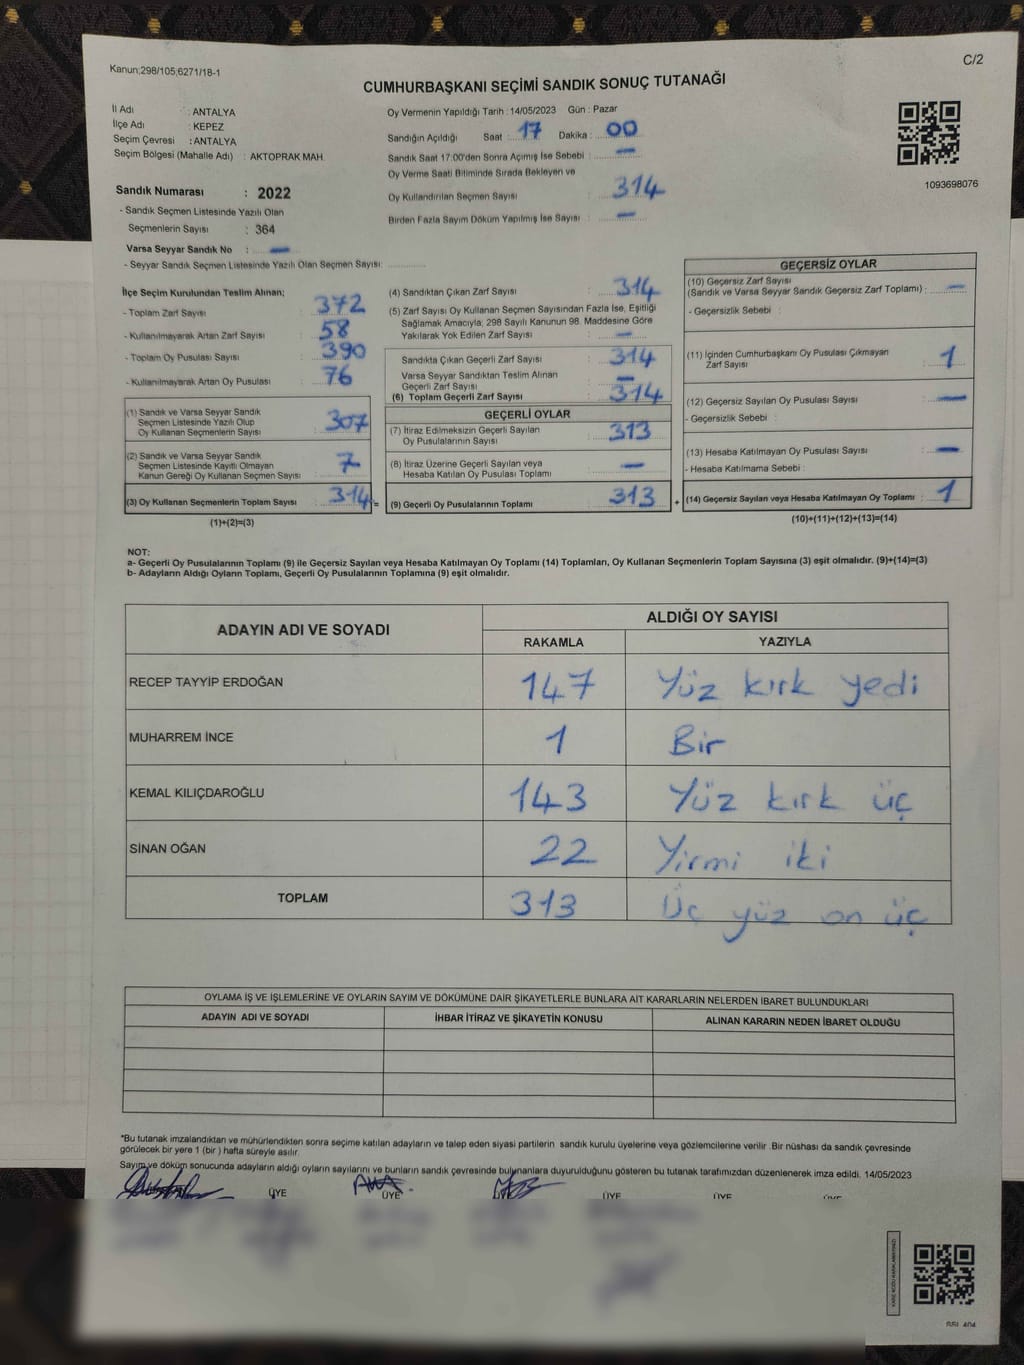 Kanun;298/105;6271/18-1
C/2
CUMHURBAŞKANI SEÇİMİ SANDIK SONUÇ TUTANAĞI
İl Adı : ANTALYA
İlçe Adı : KEPEZ
Seçim Çevresi : ANTALYA
Seçim Bölgesi (Mahalle Adı) : AKTOPRAK MAH.
Sandık Numarası : 2022
- Sandık Seçmen Listesinde Yazılı Olan
Seçmenlerin Sayısı : 364
Varsa Seyyar Sandık No : —
- Seyyar Sandık Seçmen Listesinde Yazılı Olan Seçmen Sayısı: ..............
Oy Vermenin Yapıldığı Tarih : 14/05/2023 Gün : Pazar
Sandığın Açıldığı Saat : 17 Dakika : 00
Sandık Saat 17:00'den Sonra Açımış İse Sebebi : —
Oy Verme Saati Bitiminde Sırada Bekleyen ve
Oy Kullandırılan Seçmen Sayısı : 314
Birden Fazla Sayım Döküm Yapılmış İse Sayısı : —
1093698076
İlçe Seçim Kurulundan Teslim Alınan;
- Toplam Zarf Sayısı : 372
- Kullanılmayarak Artan Zarf Sayısı : 58
- Toplam Oy Pusulası Sayısı : 390
- Kullanılmayarak Artan Oy Pusulası : 76
(1) Sandık ve Varsa Seyyar Sandık
Seçmen Listesinde Yazılı Olup
Oy Kullanan Seçmenlerin Sayısı : 307
(2) Sandık ve Varsa Seyyar Sandık
Seçmen Listesinde Kayıtlı Olmayan
Kanun Gereği Oy Kullanan Seçmen Sayısı : 7
(3) Oy Kullanan Seçmenlerin Toplam Sayısı : 314 =
(1)+(2)=(3)
(4) Sandıktan Çıkan Zarf Sayısı : 314
(5) Zarf Sayısı Oy Kullanan Seçmen Sayısından Fazla İse, Eşitliği
Sağlamak Amacıyla; 298 Sayılı Kanunun 98. Maddesine Göre
Yakılarak Yok Edilen Zarf Sayısı : —
Sandıkta Çıkan Geçerli Zarf Sayısı : 314
Varsa Seyyar Sandıktan Teslim Alınan
Geçerli Zarf Sayısı : —
(6) Toplam Geçerli Zarf Sayısı : 314
GEÇERLİ OYLAR
(7) İtiraz Edilmeksizin Geçerli Sayılan
Oy Pusulalarının Sayısı : 313
(8) İtiraz Üzerine Geçerli Sayılan veya
Hesaba Katılan Oy Pusulası Toplamı : —
(9) Geçerli Oy Pusulalarının Toplamı : 313 +
GEÇERSİZ OYLAR
(10) Geçersiz Zarf Sayısı
(Sandık ve Varsa Seyyar Sandık Geçersiz Zarf Toplamı) : —
- Geçersizlik Sebebi :
(11) İçinden Cumhurbaşkanı Oy Pusulası Çıkmayan
Zarf Sayısı : 1
(12) Geçersiz Sayılan Oy Pusulası Sayısı : —
- Geçersizlik Sebebi :
(13) Hesaba Katılmayan Oy Pusulası Sayısı : —
- Hesaba Katılmama Sebebi :
(14) Geçersiz Sayılan veya Hesaba Katılmayan Oy Toplamı : 1
(10)+(11)+(12)+(13)=(14)
NOT:
a- Geçerli Oy Pusulalarının Toplamı (9) ile Geçersiz Sayılan veya Hesaba Katılmayan Oy Toplamı (14) Toplamları, Oy Kullanan Seçmenlerin Toplam Sayısına (3) eşit olmalıdır. (9)+(14)=(3)
b- Adayların Aldığı Oyların Toplamı, Geçerli Oy Pusulalarının Toplamına (9) eşit olmalıdır.
ADAYIN ADI VE SOYADI ALDIĞI OY SAYISI
RAKAMLA YAZIYLA
RECEP TAYYİP ERDOĞAN 147 Yüz kırk yedi
MUHARREM İNCE 1 Bir
KEMAL KILIÇDAROĞLU 143 Yüz kırk üç
SİNAN OĞAN 22 Yirmi iki
TOPLAM 313 Üç yüz on üç
OYLAMA İŞ VE İŞLEMLERİNE VE OYLARIN SAYIM VE DÖKÜMÜNE DAİR ŞİKAYETLERLE BUNLARA AİT KARARLARIN NELERDEN İBARET BULUNDUKLARI
ADAYIN ADI VE SOYADI İHBAR İTİRAZ VE ŞİKAYETİN KONUSU ALINAN KARARIN NEDEN İBARET OLDUĞU
*Bu tutanak imzalandıktan ve mühürlendikten sonra seçime katılan adayların ve talep eden siyasi partilerin sandık kurulu üyelerine veya gözlemcilerine verilir. Bir nüshası da sandık çevresinde
görülecek bir yere 1 (bir) hafta süreyle asılır.
Sayım ve döküm sonucunda adayların aldığı oyların sayılarını ve bunların sandık çevresinde bulunanlara duyurulduğunu gösteren bu tutanak tarafımızdan düzenlenerek imza edildi. 14/05/2023
ÜYE ÜYE ÜYE ÜYE